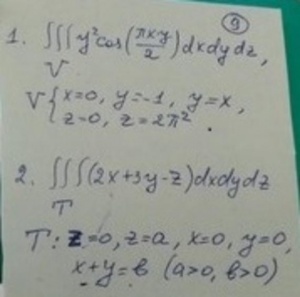 9
1. ∭ y² cos(πxy/2) dxdydz,
V
V { x=0, y=-1, y=x,
z=0, z=2π².
2. ∭ (2x+3y-z) dxdydz
T
T: z=0, z=a, x=0, y=0,
x+y=b (a>0, b>0)